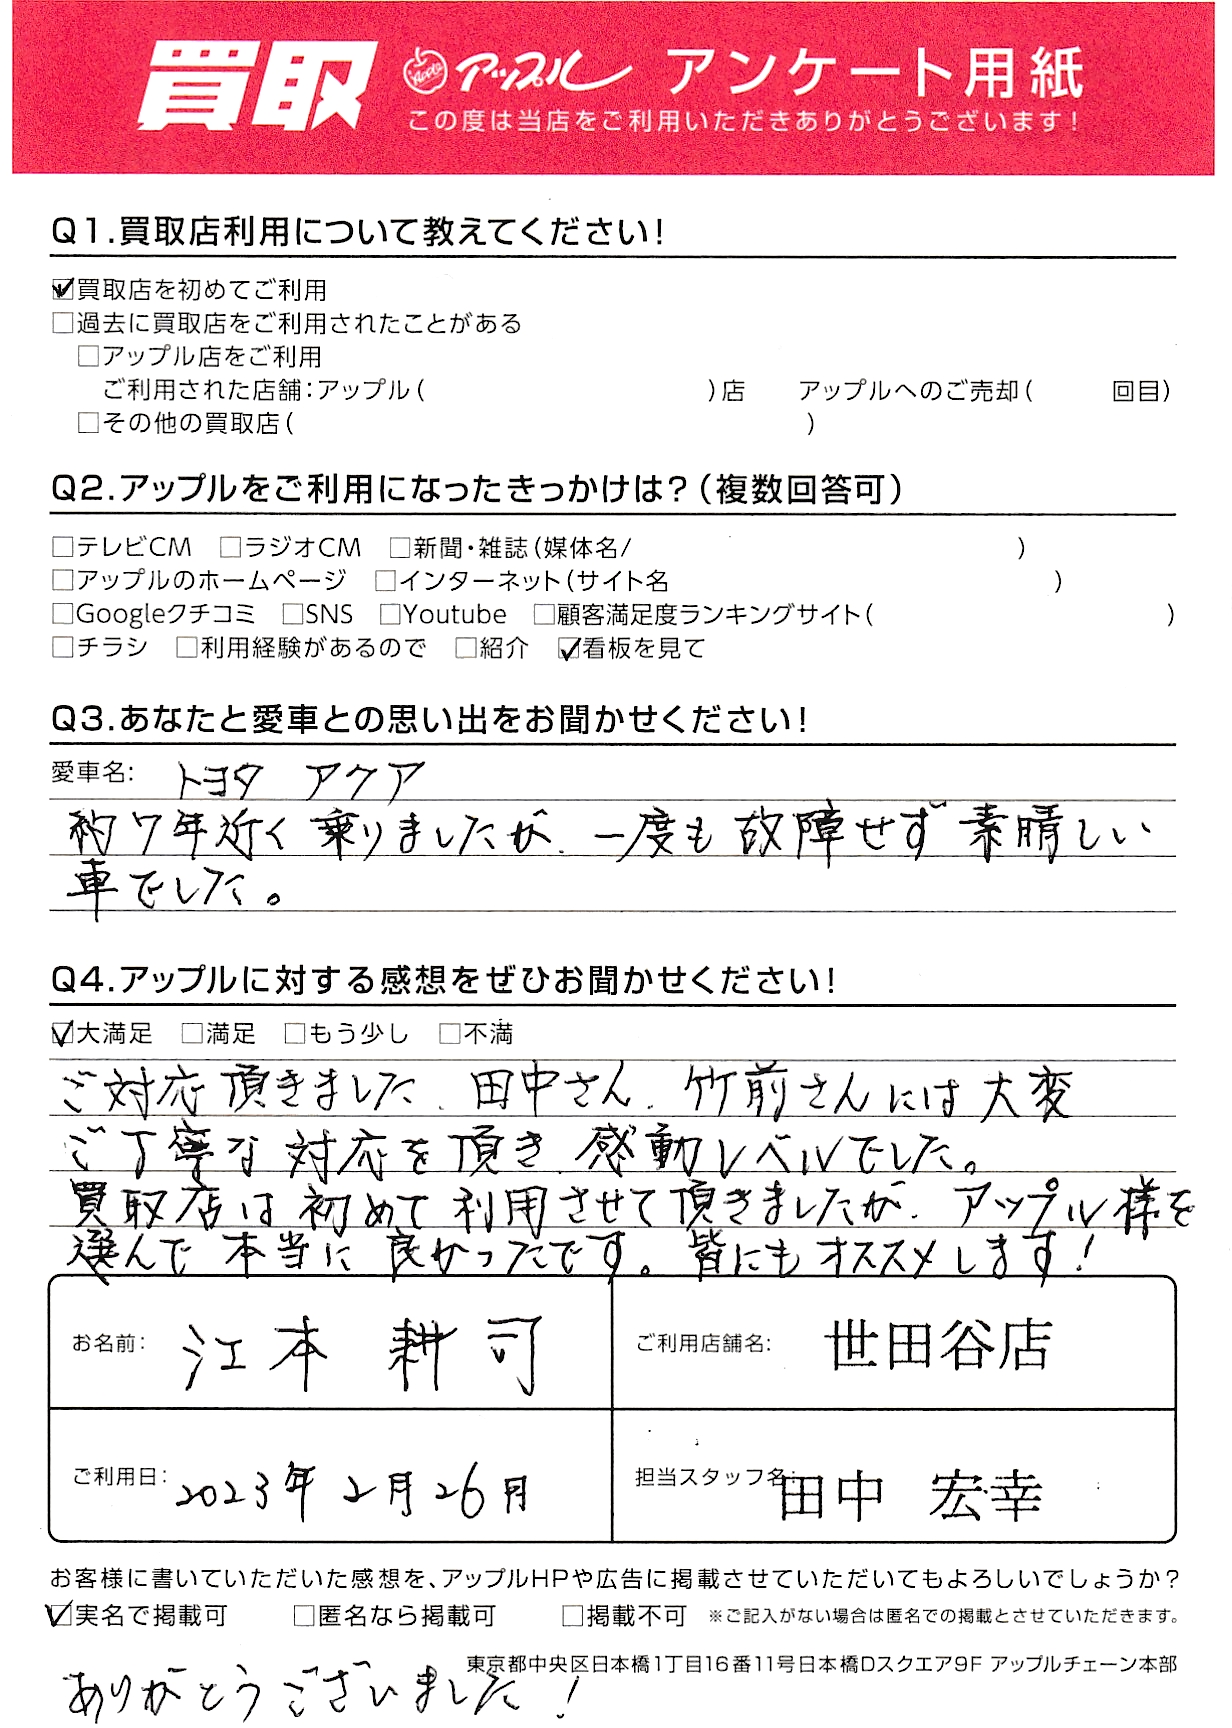 買取 アップル アンケート用紙
この度は当店をご利用いただきありがとうございます!
Q1.買取店利用について教えてください!
☑買取店を初めてご利用
□過去に買取店をご利用されたことがある
□アップル店をご利用
ご利用された店舗:アップル( )店 アップルへのご売却( 回目)
□その他の買取店( )
Q2.アップルをご利用になったきっかけは?(複数回答可)
□テレビCM □ラジオCM □新聞・雑誌(媒体名/ )
□アップルのホームページ □インターネット(サイト名 )
□Googleクチコミ □SNS □Youtube □顧客満足度ランキングサイト( )
□チラシ □利用経験があるので □紹介 ☑看板を見て
Q3.あなたと愛車との思い出をお聞かせください!
愛車名: トヨタ アクア
約7年近く乗りましたが、一度も故障せず素晴しい
車でした。
Q4.アップルに対する感想をぜひお聞かせください!
☑大満足 □満足 □もう少し □不満
ご対応頂きました、田中さん、竹前さんには大変
ご丁寧な対応を頂き、感動レベルでした。
買取店は初めて利用させて頂きましたが、アップル様を
選んで本当に良かったです。皆にもオススメします!
お名前: 江本 耕司 ご利用店舗名: 世田谷店
ご利用日: 2023年2月26日 担当スタッフ名: 田中 宏幸
お客様に書いていただいた感想を、アップルHPや広告に掲載させていただいてもよろしいでしょうか?
☑実名で掲載可 □匿名なら掲載可 □掲載不可 ※ご記入がない場合は匿名での掲載とさせていただきます。
東京都中央区日本橋1丁目16番11号日本橋Dスクエア9F アップルチェーン本部
ありがとうございました!